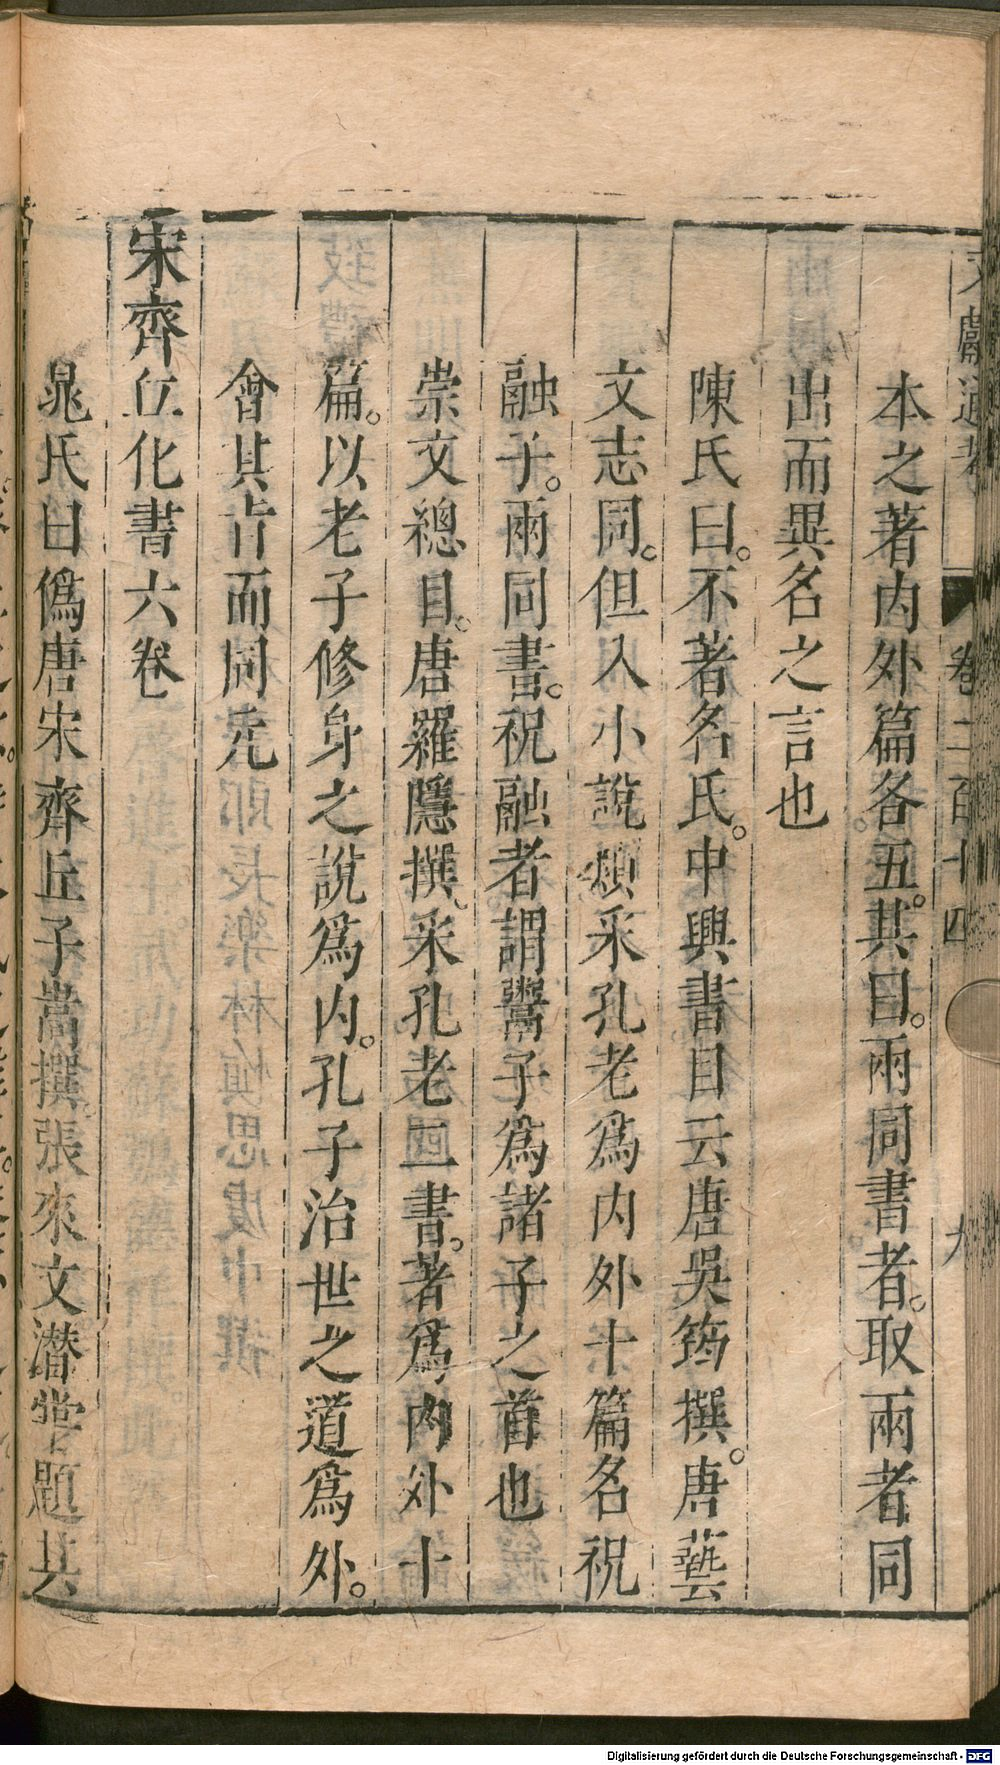 文獻通考 卷二百十四 九
本之著內外篇各五其目兩同書者取兩者同
出而異名之言也
陳氏曰不著名氏中興書目云唐吳筠撰唐藝
文志同但入小說類采孔老爲內外十篇名祝
融子兩同書祝融者謂鬻子爲諸子之首也
崇文總目唐羅隱撰采孔老二書著爲內外十
篇以老子修身之說爲內孔子治世之道爲外
會其旨而同元
宋齊丘化書六卷
晁氏曰僞唐宋齊丘子嵩撰張來文潛嘗題其
Digitalisierung gefördert durch die Deutsche Forschungsgemeinschaft - DFG